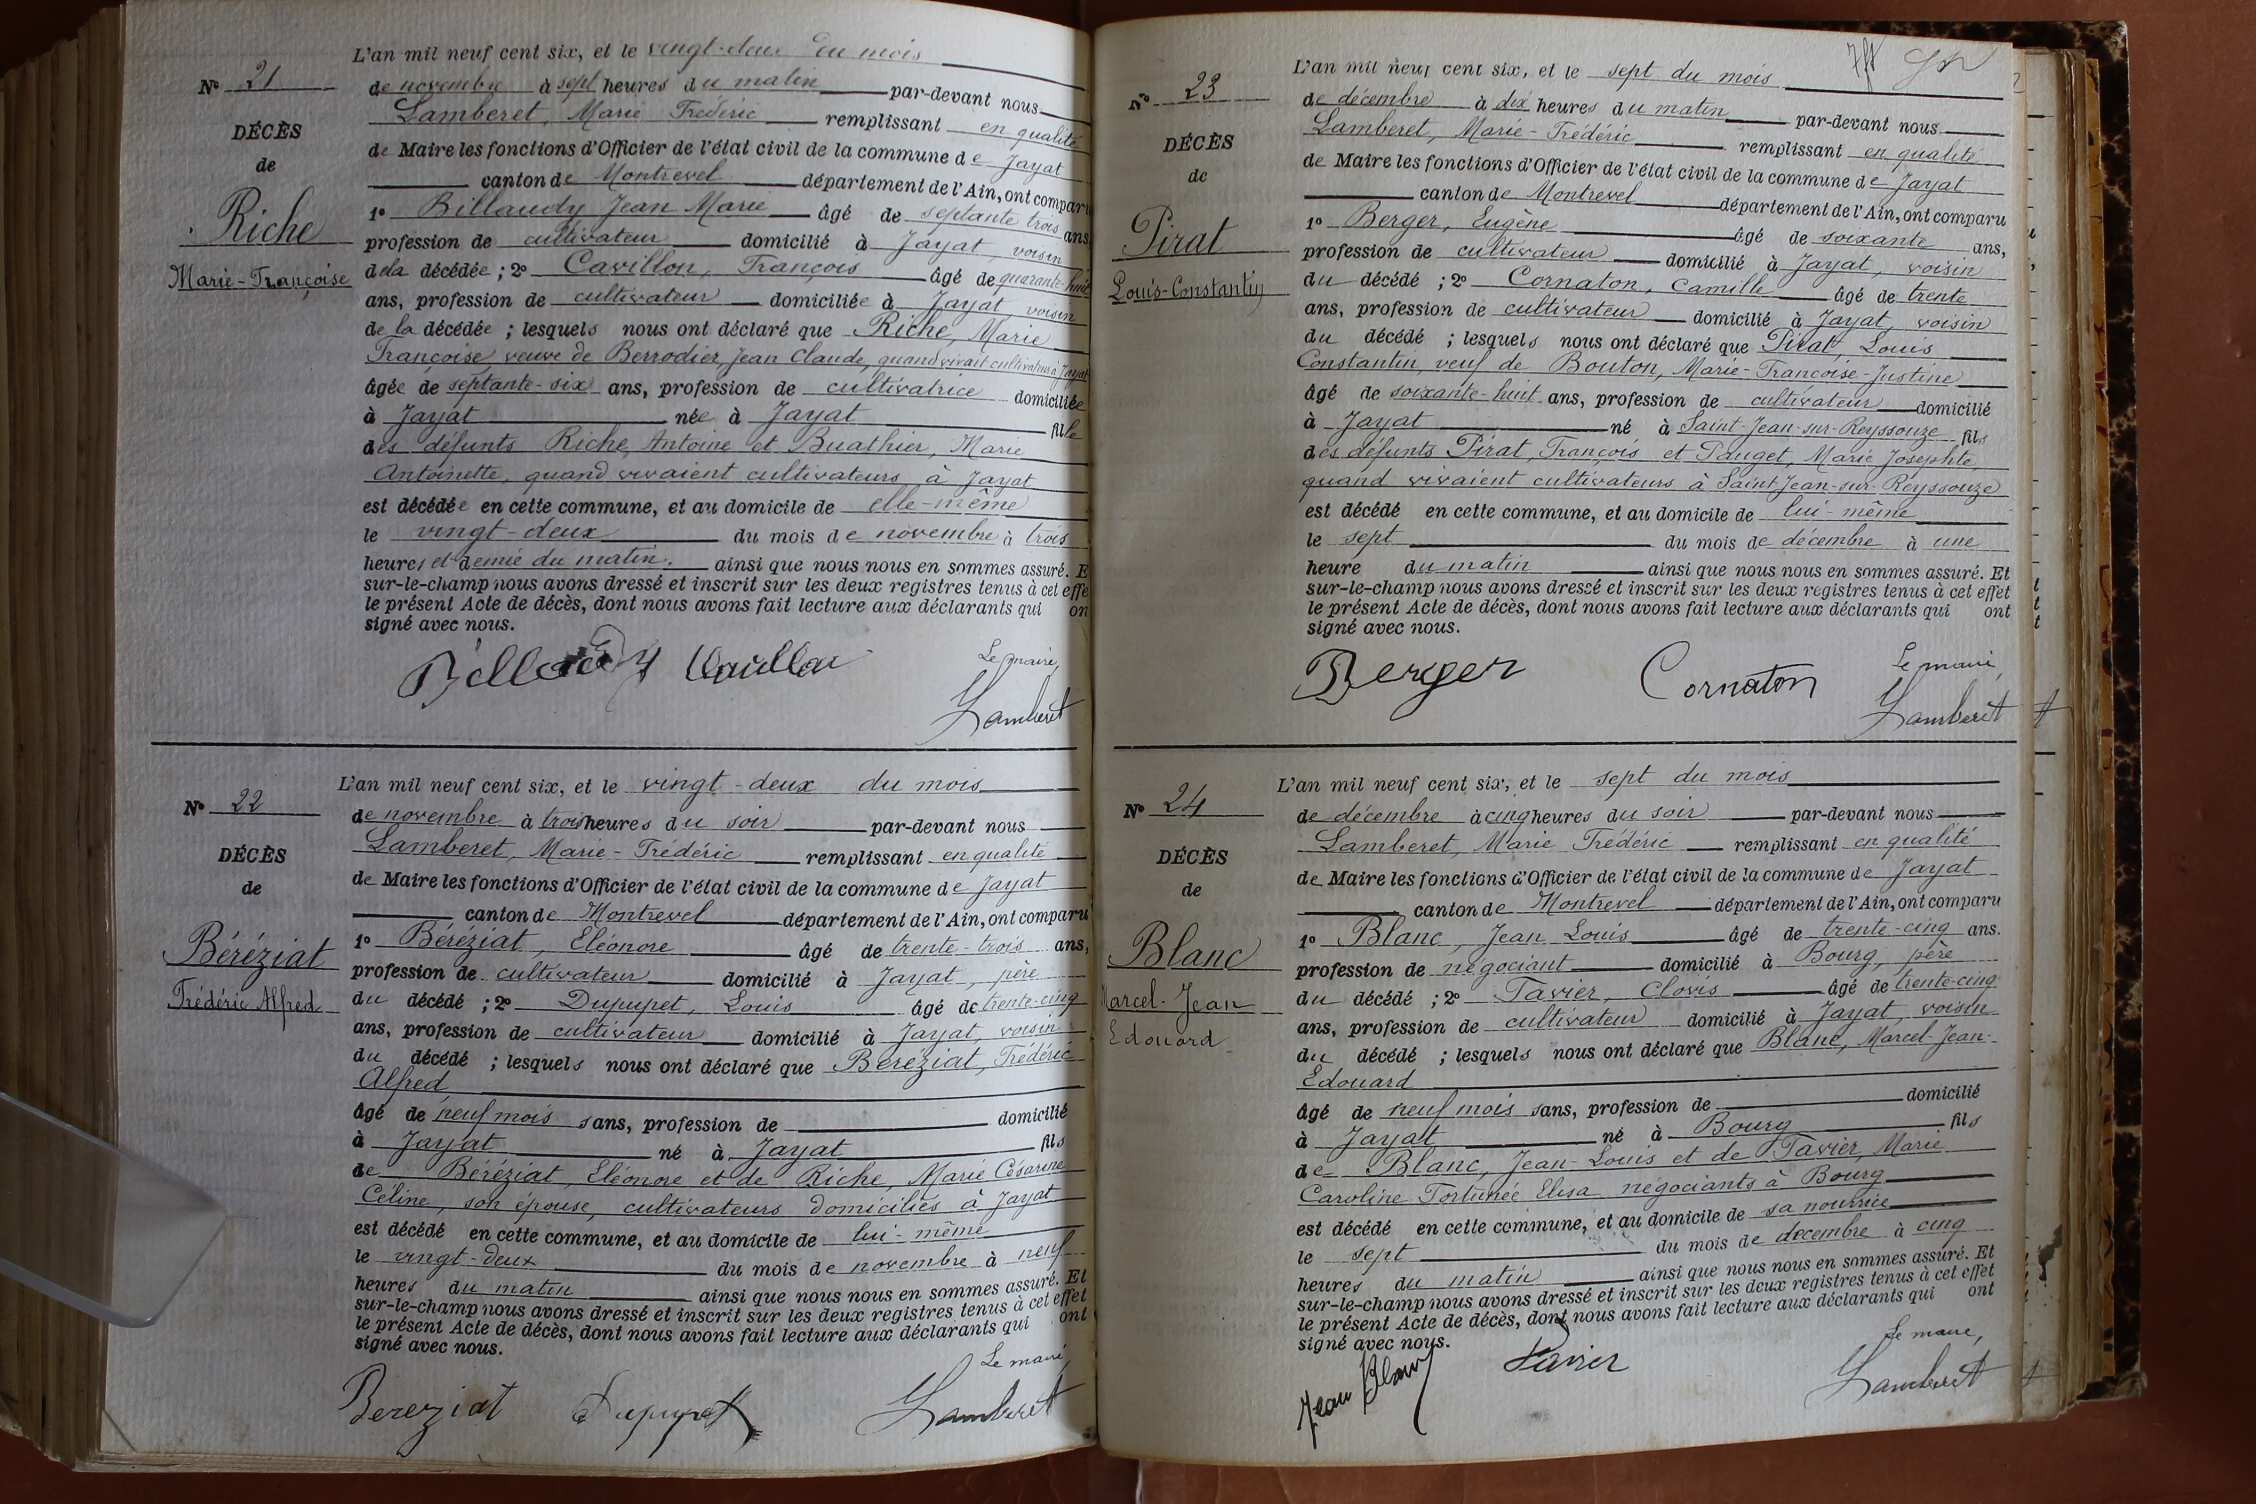 N° 21
DÉCÈS
de
Riche
Marie-Françoise
L'an mil neuf cent six, et le vingt-deux du mois
de novembre à sept heures du matin par-devant nous
Lamberet, Marie Frédéric remplissant en qualité
de Maire les fonctions d'Officier de l'état civil de la commune de Jayat
canton de Montrevel département de l'Ain, ont comparu
1° Billaudy Jean Marie âgé de septante trois ans,
profession de cultivateur domicilié à Jayat, voisin
de la décédée ; 2° Cavillon, François âgé de quarante-huit
ans, profession de cultivateur domiciliée à Jayat, voisin
de la décédée ; lesquels nous ont déclaré que Riche, Marie
Françoise, veuve de Berrodier, Jean Claude, quand vivait cultivateur à Jayat
âgée de septante-six ans, profession de cultivatrice domiciliée
à Jayat née à Jayat fille
des défunts Riche, Antoine et Buathier, Marie
Antoinette, quand vivaient cultivateurs à Jayat
est décédée en cette commune, et au domicile de elle-même
le vingt-deux du mois de novembre à trois
heures et demie du matin. ainsi que nous nous en sommes assuré. E
sur-le-champ nous avons dressé et inscrit sur les deux registres tenus à cet effe
le présent Acte de décès, dont nous avons fait lecture aux déclarants qui on
signé avec nous.
Billaudy
Le maire,
Lamberet
N° 22
DÉCÈS
de
Béréziat
Frédéric Alfred
L'an mil neuf cent six, et le vingt-deux du mois
de novembre à trois heures du soir par-devant nous
Lamberet, Marie-Frédéric remplissant en qualité
de Maire les fonctions d'Officier de l'état civil de la commune de Jayat
canton de Montrevel département de l'Ain, ont comparu
1° Béréziat, Eléonore âgé de trente-trois ans,
profession de cultivateur domicilié à Jayat, père
du décédé ; 2° Dupupet, Louis âgé de trente-cinq
ans, profession de cultivateur domicilié à Jayat, voisin
du décédé ; lesquels nous ont déclaré que Bereziat, Frédéric
Alfred
âgé de neuf mois sans, profession de domicilié
à Jayat né à Jayat fils
de Béréziat, Eléonore et de Riche, Marie Césarine
Céline, son épouse, cultivateurs domiciliés à Jayat
est décédé en cette commune, et au domicile de lui-même
le vingt-deux du mois de novembre à neuf
heures du matin ainsi que nous nous en sommes assuré. Et
sur-le-champ nous avons dressé et inscrit sur les deux registres tenus à cet effet
le présent Acte de décès, dont nous avons fait lecture aux déclarants qui ont
signé avec nous.
Le maire,
Bereziat Dupupet Lamberet
N° 23
DÉCÈS
de
Pirat
Louis-Constantin
L'an mil neuf cent six, et le sept du mois
de décembre à dix heures du matin par-devant nous
Lamberet, Marie-Frédéric remplissant en qualité
de Maire les fonctions d'Officier de l'état civil de la commune de Jayat
canton de Montrevel département de l'Ain, ont comparu
1° Berger, Eugène âgé de soixante ans,
profession de cultivateur domicilié à Jayat, voisin
du décédé ; 2° Cornaton, Camille âgé de trente
ans, profession de cultivateur domicilié à Jayat, voisin
du décédé ; lesquels nous ont déclaré que Pirat, Louis
Constantin, veuf de Bouton, Marie-Françoise-Justine
âgé de soixante-huit ans, profession de cultivateur domicilié
à Jayat né à Saint-Jean-sur-Reyssouze fils
des défunts Pirat, François et Pauget, Marie Josephte,
quand vivaient cultivateurs à Saint Jean-sur-Reyssouze
est décédé en cette commune, et au domicile de lui-même
le sept du mois de décembre à une
heure du matin ainsi que nous nous en sommes assuré. Et
sur-le-champ nous avons dressé et inscrit sur les deux registres tenus à cet effet
le présent Acte de décès, dont nous avons fait lecture aux déclarants qui ont
signé avec nous.
Le maire,
Berger Cornaton Lamberet
N° 24
DÉCÈS
de
Blanc
Marcel-Jean
Edouard
L'an mil neuf cent six, et le sept du mois
de décembre à cinq heures du soir par-devant nous
Lamberet, Marie Frédéric remplissant en qualité
de Maire les fonctions d'Officier de l'état civil de la commune de Jayat
canton de Montrevel département de l'Ain, ont comparu
1° Blanc, Jean Louis âgé de trente-cinq ans.
profession de négociant domicilié à Bourg, père
du décédé ; 2° Tavier, Clovis âgé de trente-cinq
ans, profession de cultivateur domicilié à Jayat, voisin
du décédé ; lesquels nous ont déclaré que Blanc, Marcel-Jean-
Edouard
âgé de neuf mois sans, profession de domicilié
à Jayat né à Bourg fils
de Blanc, Jean-Louis et de Tavier, Marie
Caroline Fortunée Elisa négociants à Bourg
est décédé en cette commune, et au domicile de sa nourrice
le sept du mois de decembre à cinq
heures du matin ainsi que nous nous en sommes assuré. Et
sur-le-champ nous avons dressé et inscrit sur les deux registres tenus à cet effet
le présent Acte de décès, dont nous avons fait lecture aux déclarants qui ont
signé avec nous.
Le maire,
Jean Blanc Tavier Lamberet